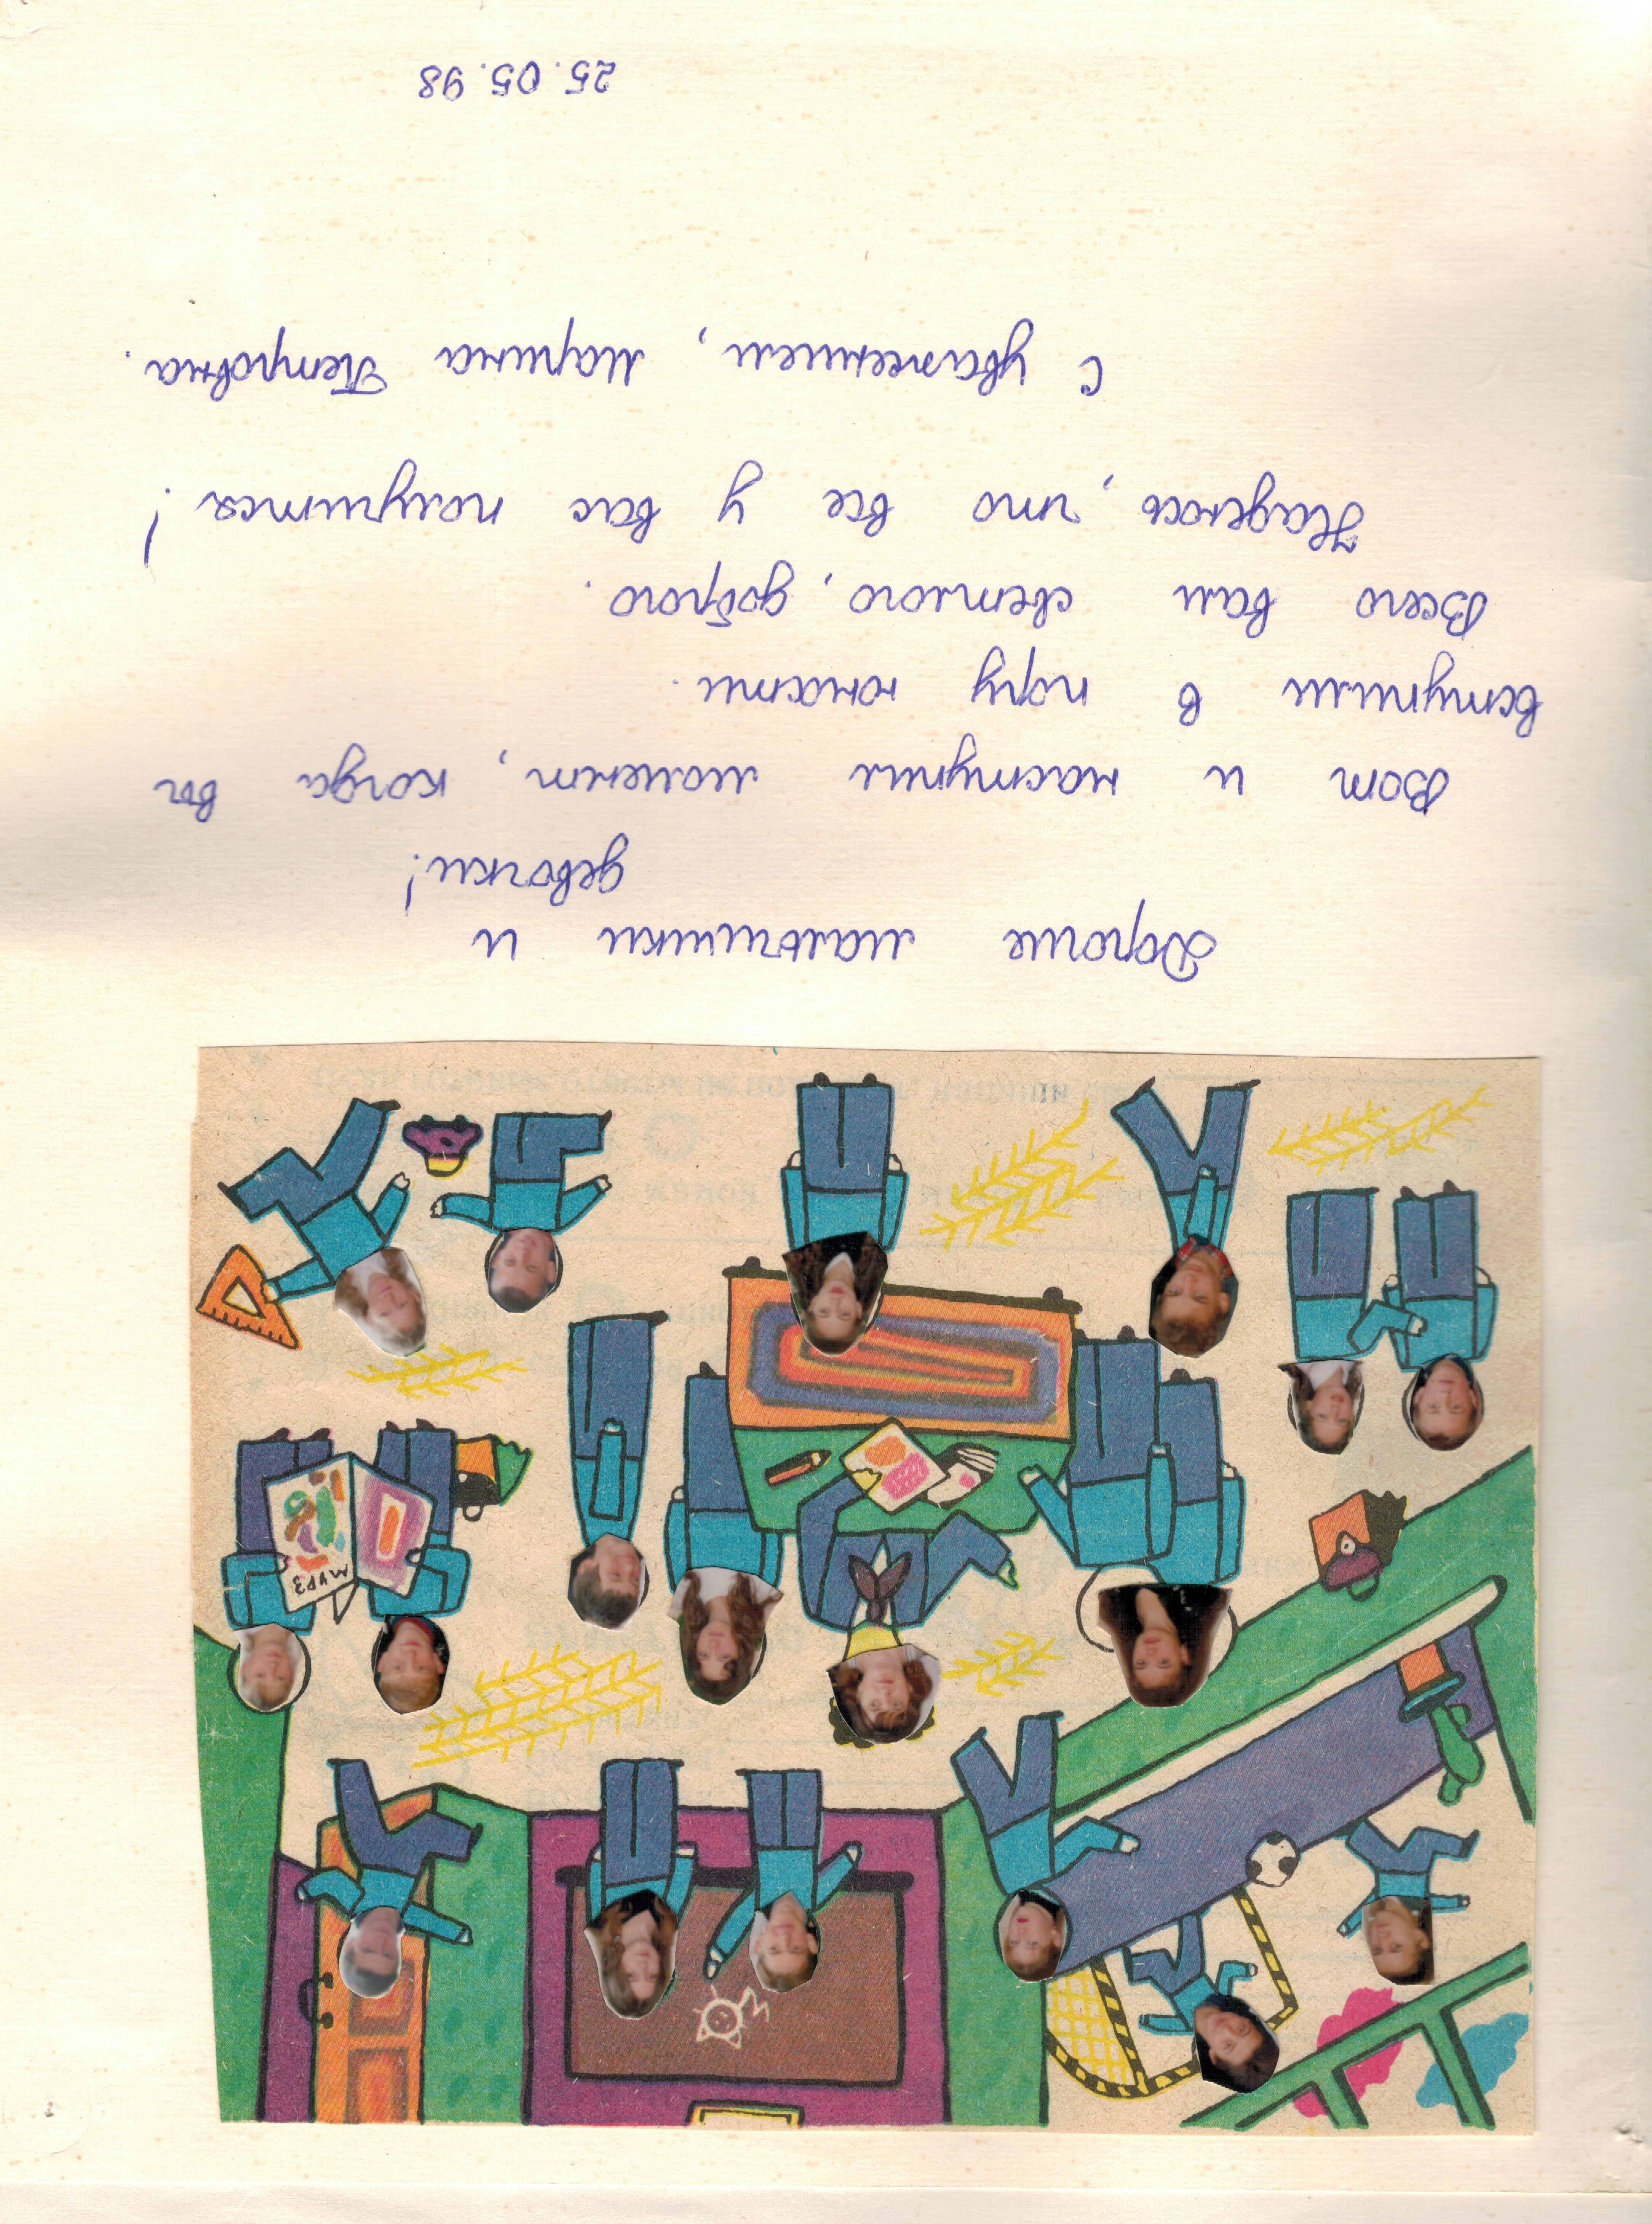 МУРЗ
Дорогие мальчишки и
девочки!
Вот и наступил момент, когда вы
вступили в пору юности.
Всего вам светлого, доброго.
Надеюсь, что все у вас получится!
С уважением, Марина Петровна.
25.05.98